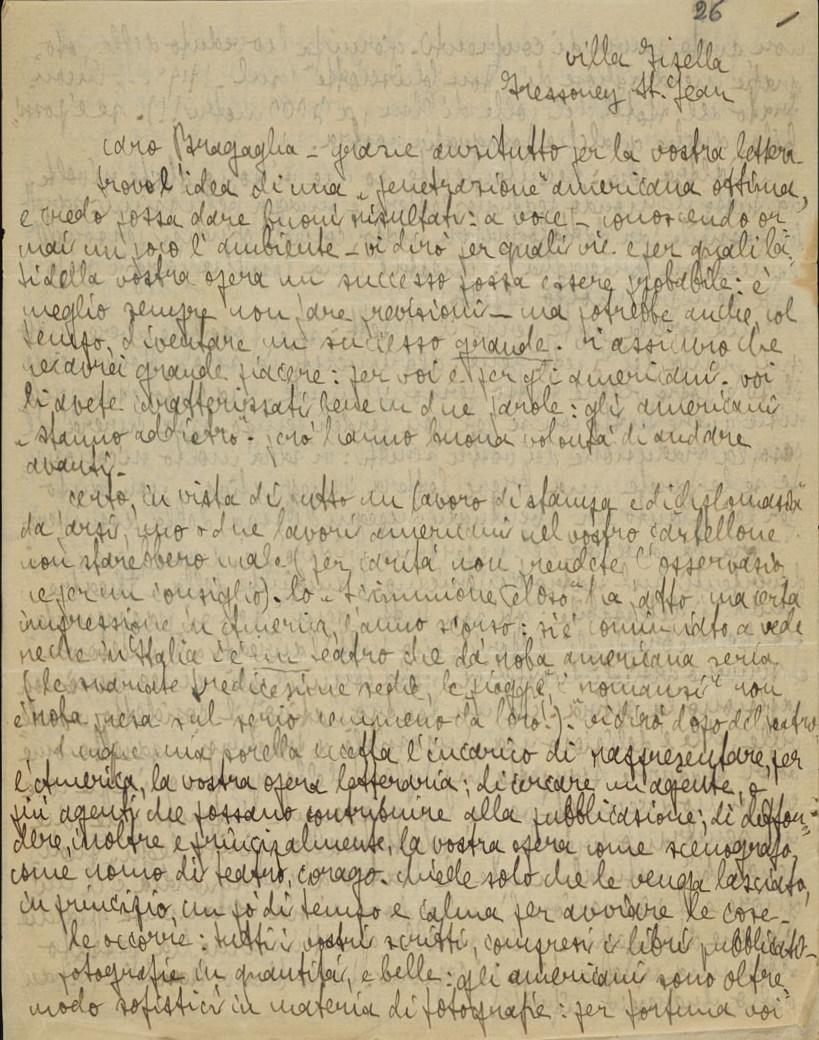 26
villa Gisella
Gressoney St. Jean
caro Bragaglia - grazie anzitutto per la vostra lettera
trovo l'idea di una "penetrazione" americana ottima,
e credo possa dare buoni risultati: a voce - conoscendo or
mai un poco l'ambiente - vi dirò per quali vie e per quali la=
ti della vostra opera un successo possa essere probabile: è
meglio sempre non fare previsioni - ma potrebbe anche, col
tempo, diventare un successo grande. Vi assicuro che
ne avrei grande piacere: per voi e per gli americani. voi
li avete caratterizzati bene in due parole: gli americani
"stanno addietro". però hanno buona volontà di andare
avanti -
certo, in vista di tutto un lavoro di stampa e di diplomazia
da farsi, uno o due lavori americani nel vostro cartellone
non starebbero male (per carità non prendete l'osservazio
ne per un consiglio). lo "Scimmione Peloso" ha fatto una certa
impressione in America, l'anno scorso: si è cominciato a vede
re che in Italia c'è un teatro che dà roba americana seria
(le svariate tredicesime sedie, le "piogge", i "romanzi" non
è roba presa sul serio nemmeno da loro!). vi dirò dopo del vostro
dunque mia sorella accetta l'incarico di rappresentare, per
l'America, la vostra opera letteraria; di cercare un agente, o
più agenti che possano contribuire alla pubblicazione; di diffon=
dere, inoltre e principalmente, la vostra opera come scenografo,
come uomo di teatro, corago. chiede solo che le venga lasciato,
in principio, un pò di tempo e calma per avviare le cose -
le occorre: tutti i vostri scritti, compresi i libri pubblicati -
fotografie in quantità, e belle: gli americani sono oltre
modo sofistici in materia di fotografie: per fortuna voi